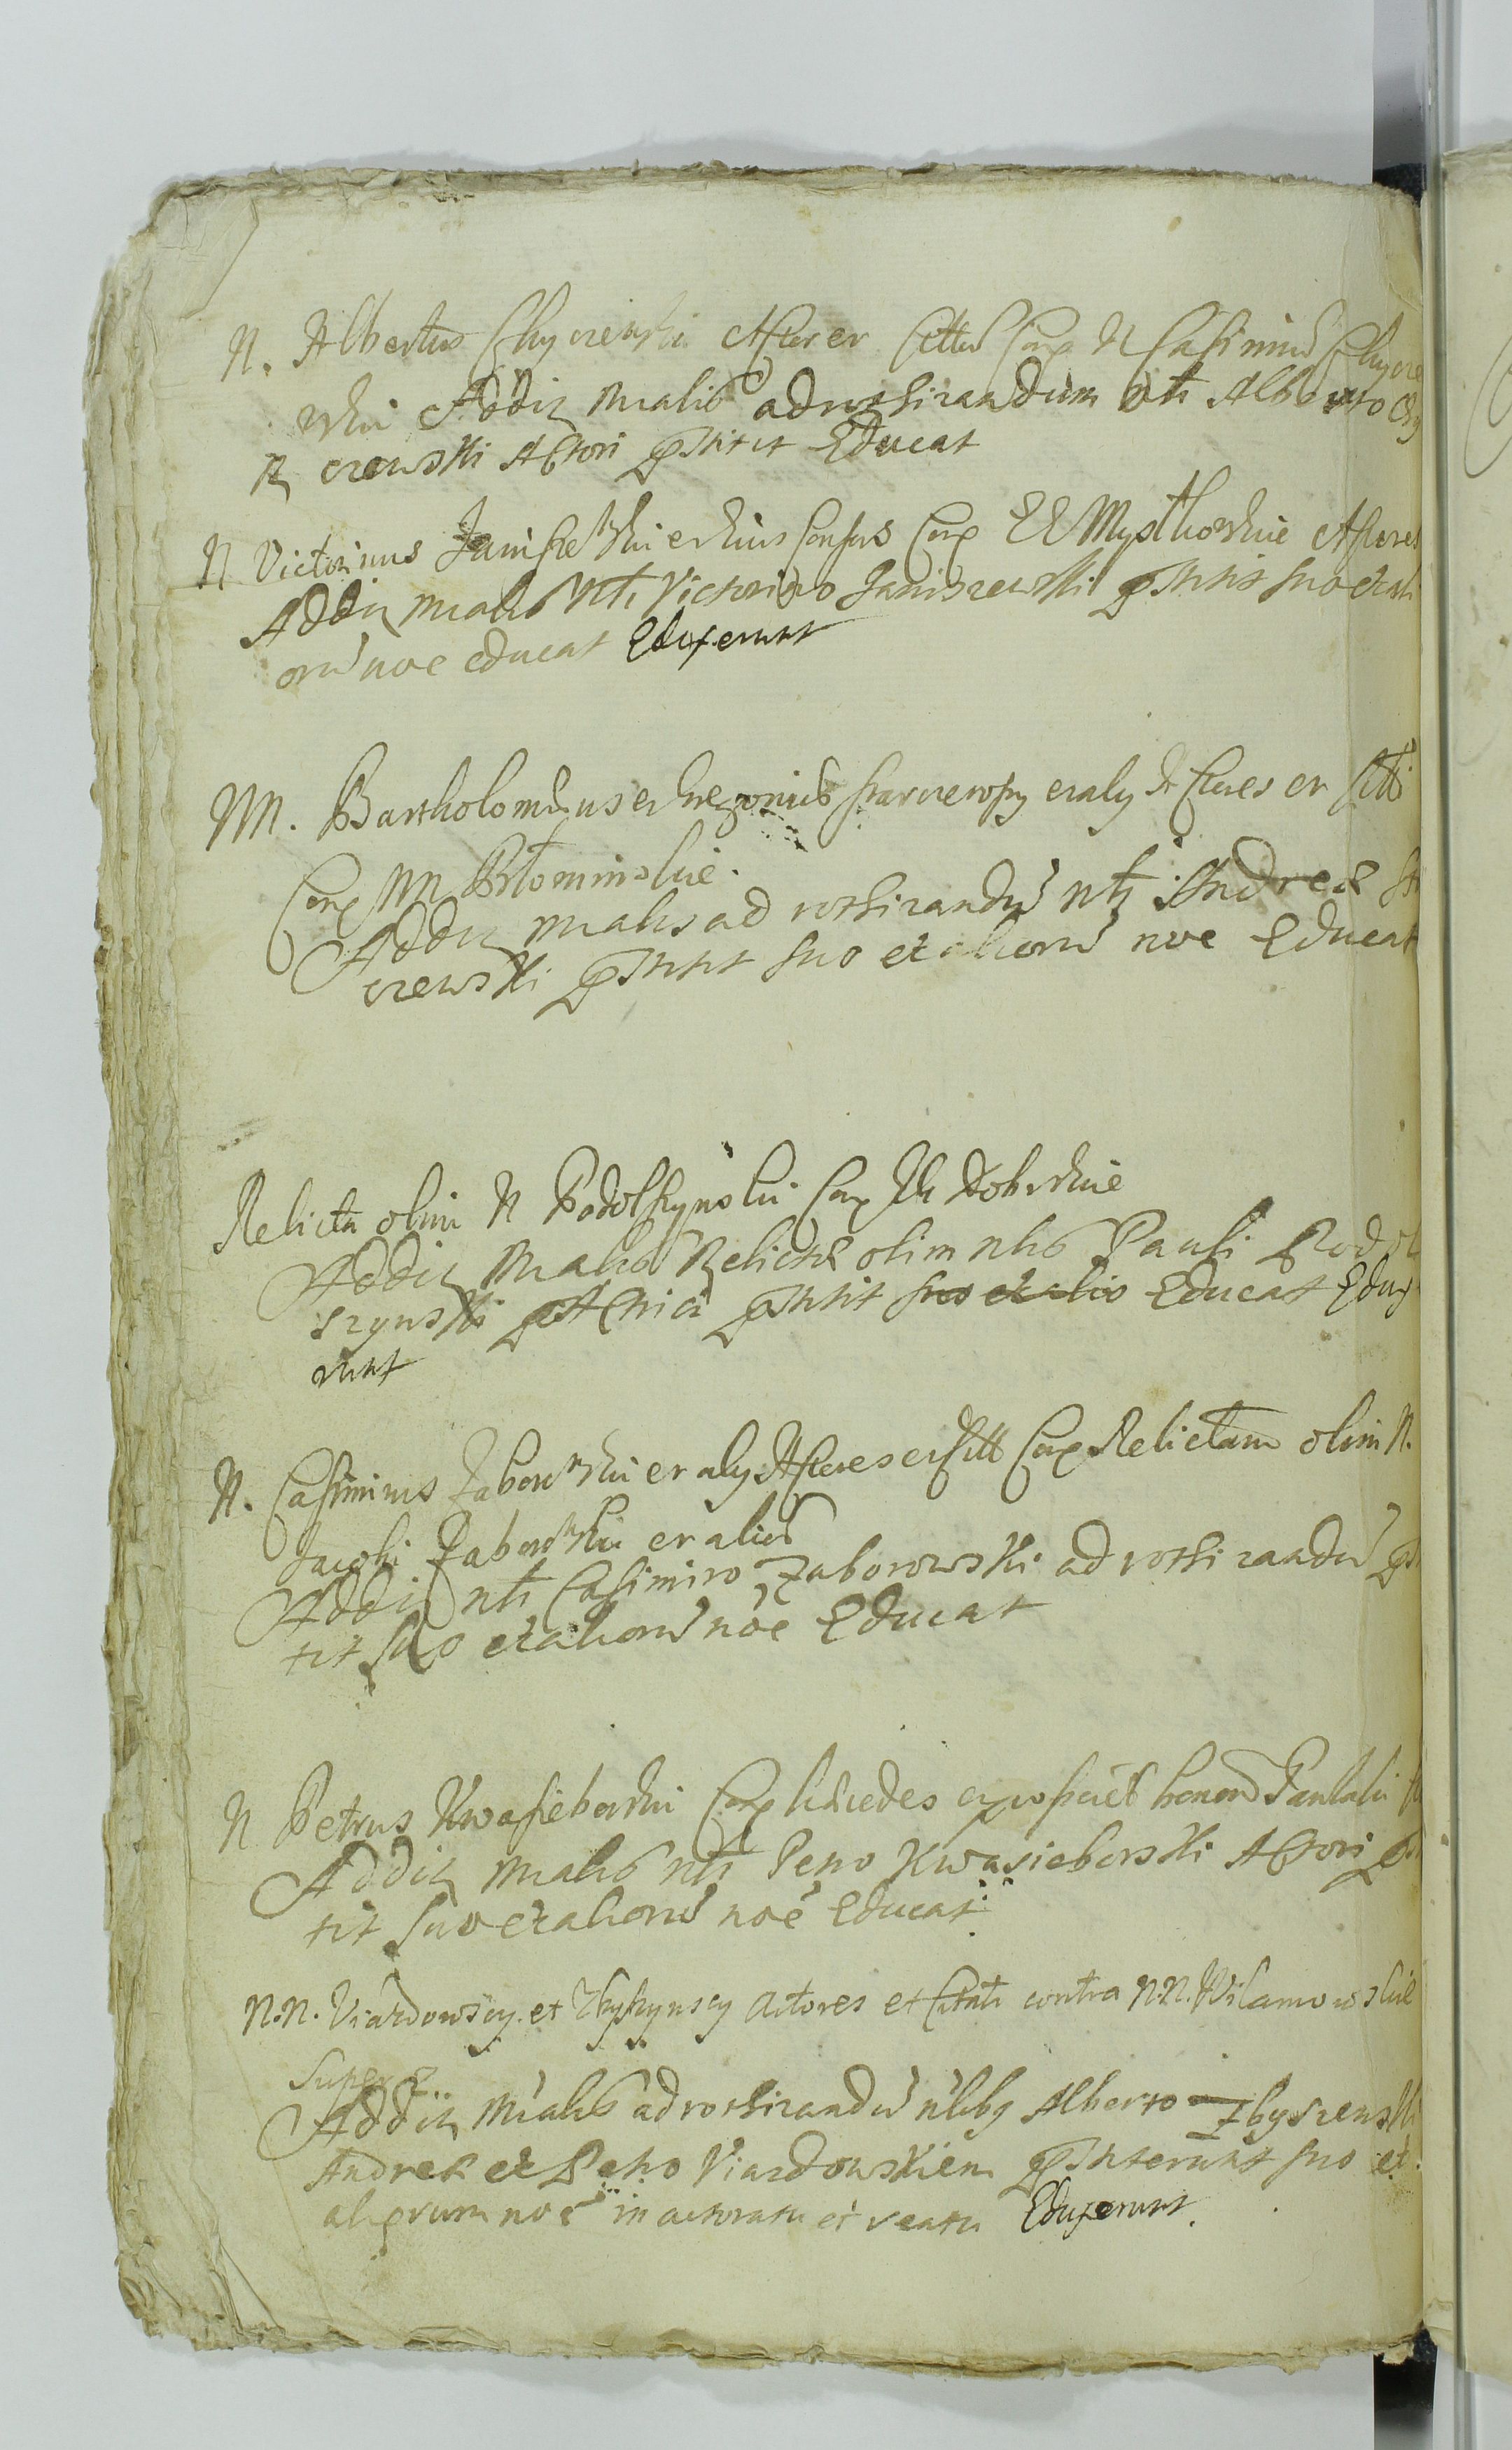 N. Albertus Chyczewski Actor et Citt Con N Casimiru Chycze
wski Addit Mialis ad rothizandum nti Alberto Chy
czewski Actori pstitit Educat
N Victorinus Janiszewski et eius Consors Con NN Mystkowskie Actores
Addit mialis Nti Victorino Janiszewski pstitit suo et ali
oru noe educat Eduxerunt
NN. Bartholomeus et Gregorius Skarczewscy et aly Actores et Citti
Con NN Błominskie.
Addit mialis ad rothizandu nti Andreæ
czewski pstitit suo et alioru noe Educat
Relicta olim N Podolszynski Con N Dobrskie
Addit Mialis Relictæ olim nlis Pauli Podol
szynski Actrici pstitit suo et alio Educat Edux
erunt
N. Casimirus Zaborowski et aly Actores et Citt Con Relictam olim N.
Jacobi Zaborowski et alios
Addit nti Casimiro Zaborowski ad rothizandu ps
tit suo et alioru noe Educat
N Petrus Kwasieborski Con hæredes et possess bonoru
Addit Mialis nti Petro Kwasieborski Actori ps
tit suo et alioru noe Educat
N.N. Viardowscy et Zbyszynscy Actores et Citati contra N.N. Wilamowskie
Super
Addit Mialis ad rothizandu nlibg Alberto Zbyszewski
Andreæ et Petro Viardowskiem pstiterunt suo et
aliorum noe in actoratu et reatu Eduxerunt.